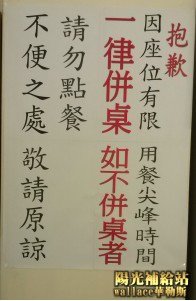 抱歉
因座位有限 用餐尖峰時間
一律併桌 如不併桌者
請勿點餐
不便之處 敬請原諒
陽光補給站
wallace華勒斯